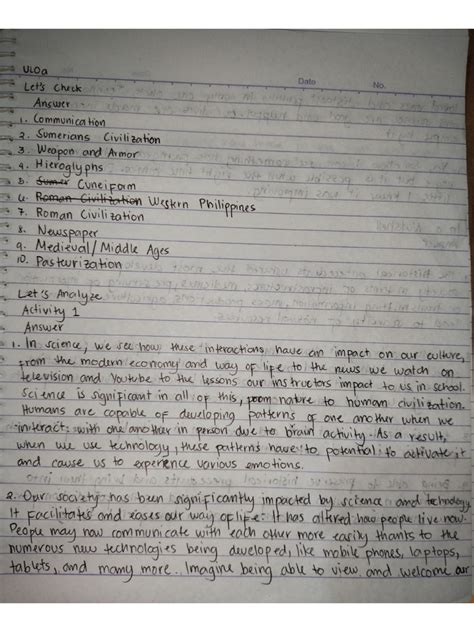 ULOa
Date No.
Let's Check
Answer
1. Communication
2. Sumerians Civilization
3. Weapon and Armor
4. Hieroglyphs
5. Sumer Cuneiform
6. Roman Civilization Western Philippines
7. Roman Civilization
8. Newspaper
9. Medieval/ Middle Ages
10. Pasteurization
Let's Analyze
Activity 1
Answer
1. In science, we see how these interactions have an impact on our culture,
from the modern economy and way of life to the news we watch on
television and Youtube to the lessons our instructors impact to us in school.
Science is significant in all of this, from nature to human civilization.
Humans are capable of developing patterns of one another when we
interact with one another in person due to brain activity. As a result,
when we use technology, these patterns have to potential to activate it
and cause us to experience various emotions.
2. Our society has been significantly impacted by science and technology.
It facilitates and eases our way of life. It has altered how people live now.
People may now communicate with each other more easily thanks to the
numerous new technologies being developed, like mobile phones, laptops,
tablets, and many more. Imagine being able to view and welcome our